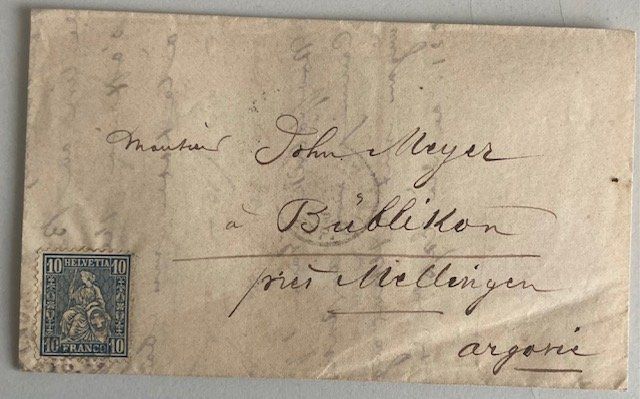 Monsieur John Meyer
à Büblikon
près Mellingen
argovie
10 HELVETIA 10
10 FRANCO 10